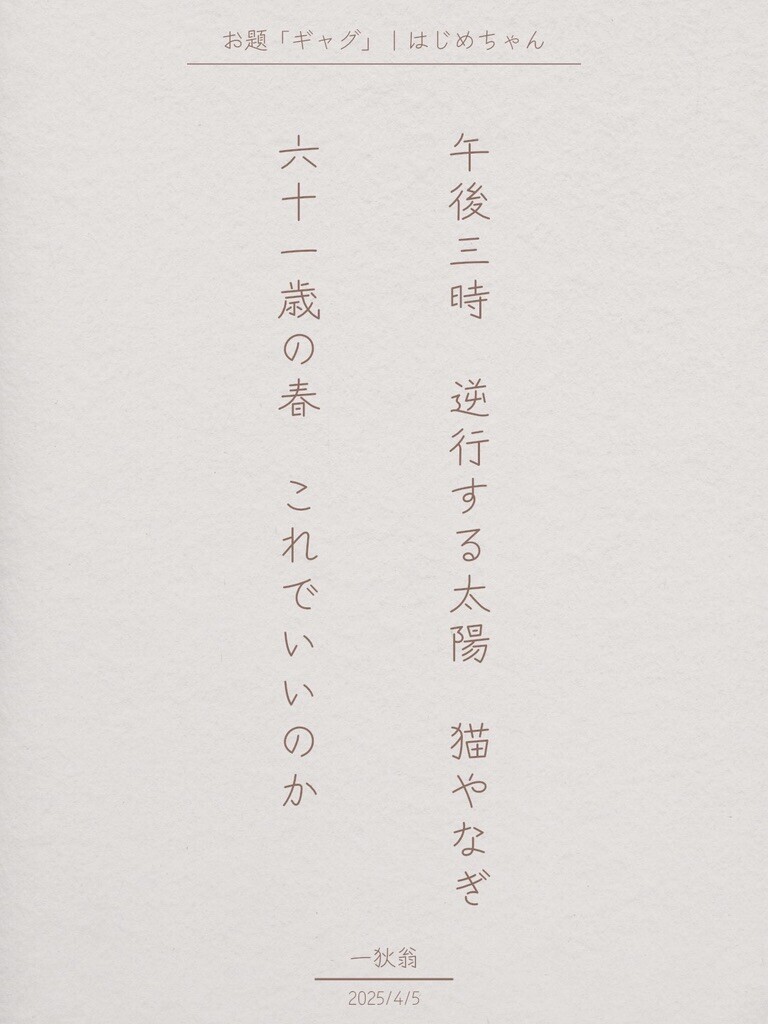 お題「ギャグ」 | はじめちゃん
午後三時　逆行する太陽　猫やなぎ
六十一歳の春　これでいいのか
一狄翁
2025/4/5